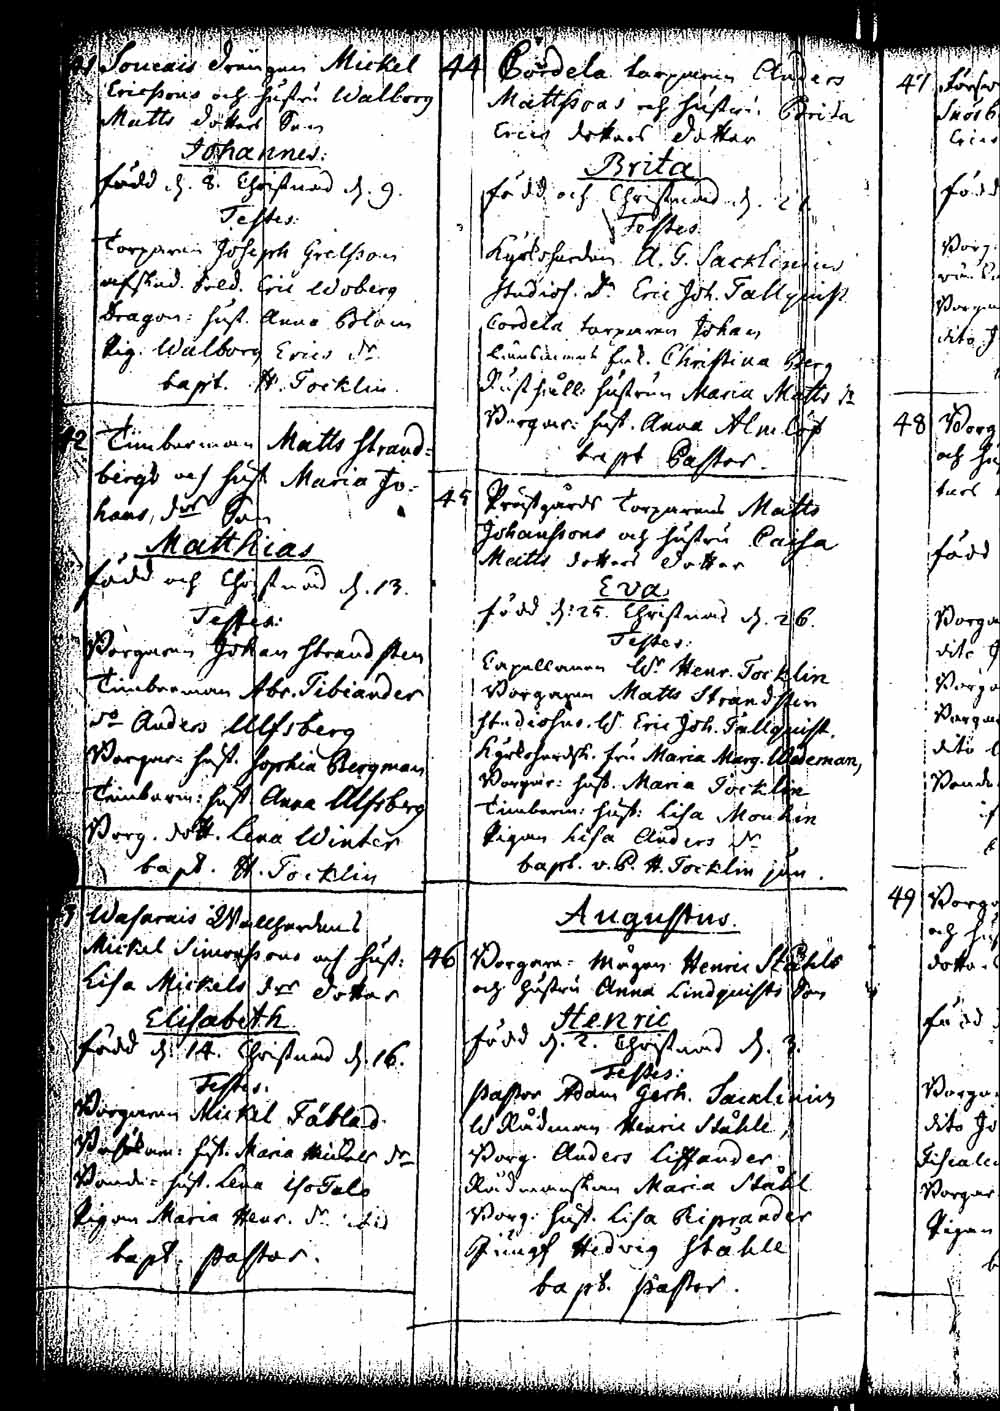 41 Soucais Drängen Mickel
Ericssons och hustru Walborg
Matts dotters Son
Johannes:
född d. 8. Christnad d. 9.
Testes:
Torparen Joseph Grelsson
afsked. Sold. Eric Woberg
Dragon: hust. Anna Blom
Pig. Walborg Erics dr
bapt. H. Tocklin
42 Timberman Matts Strand-
bergs och hust Maria Jo-
hans dr Son
Matthias
född och Christnad d. 13.
Testes:
Borgaren Johan Strandsten
Timberman Abr. Tibiander
do Anders Ulfsberg
Borgar: hust. Sophia Bergman
Timberm: hust Anna Ulfsberg
Borg. dott. Lena Winter
bapt. H. Tocklin
43 Wasarais Wallherdens
Mickel Simonssons och hust:
Lisa Mickels drs dotter
Elisabeth
född d. 14. Christnad d. 16.
Testes:
Borgaren Mickel Fäblad
hust. Maria Mickels dr
Bonde: hust. Lena
Pigan Maria Henr. dr
bapt. Pastor.
44 Cordela torparen Anders
Mattssons och hustru Brita
Erics dotters dotter
Brita
född och Christnad d. 21.
Testes
Kyrkoherden A. G. Sacklinius
Studios. Dn Eric Joh. Tallquist
Cordela torparen Johan
Christina Berg
Rusthåll: hustrun Maria Matts dr
Borgar: hust. Anna Almlöf
bapt Pastor.
45 Prästgårds Torparens Matts
Johanssons och hustru Caisa
Matts dotters dotter
Eva
född d: 25. Christnad d. 26.
Testes:
Capellanen Wr Henr. Tocklin
Borgaren Matts Strandsten
Studiosus W. Eric Joh. Tallquist.
Kyrkoherdsk. fru Maria Marg. Wideman,
Borgar: hust. Maria Tocklin
Timberm: hust: Lisa Monkin
Pigan Lisa Anders dr
bapt. v. P. H. Tocklin jun.
Augustus.
46 Borgare- Mågen Henric Ståhls
och hustru Anna Lindquists Son
Henric
född d. 2. Christnad d. 3.
Testes:
Pastor Adam Gerh. Sacklinius
W Rådman Henric Ståhle,
Borg. Anders Listander
Rådmanskan Maria Ståhl
Borg: hust. Lisa Riprander
Jungf Hedvig Ståhle
bapt. Pastor.
47
född
48 Borg
och
född
Borga
dito
Borga
Borgar
dito
Bonde
49 Borga
och hus
dotter
född
Borga
dito Jo
Borgar
Pigan